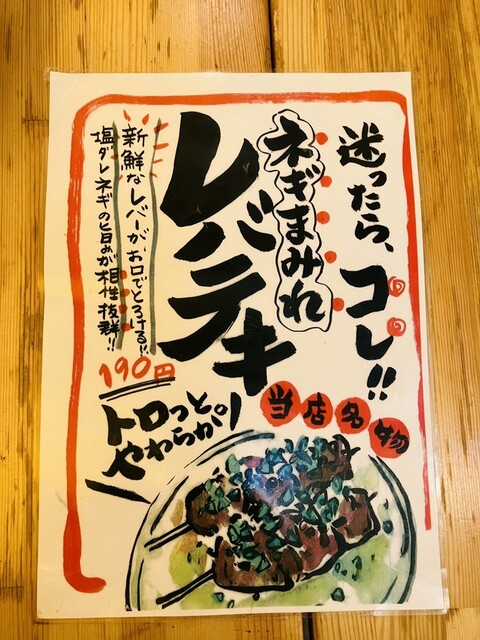 迷ったら、コレ!!
ネギまみれ
レバテキ
新鮮なレバーがお口でとろける!!
塩ダレネギの旨みが相性抜群!!
190円
トロっと
やわらか〜
当店名物